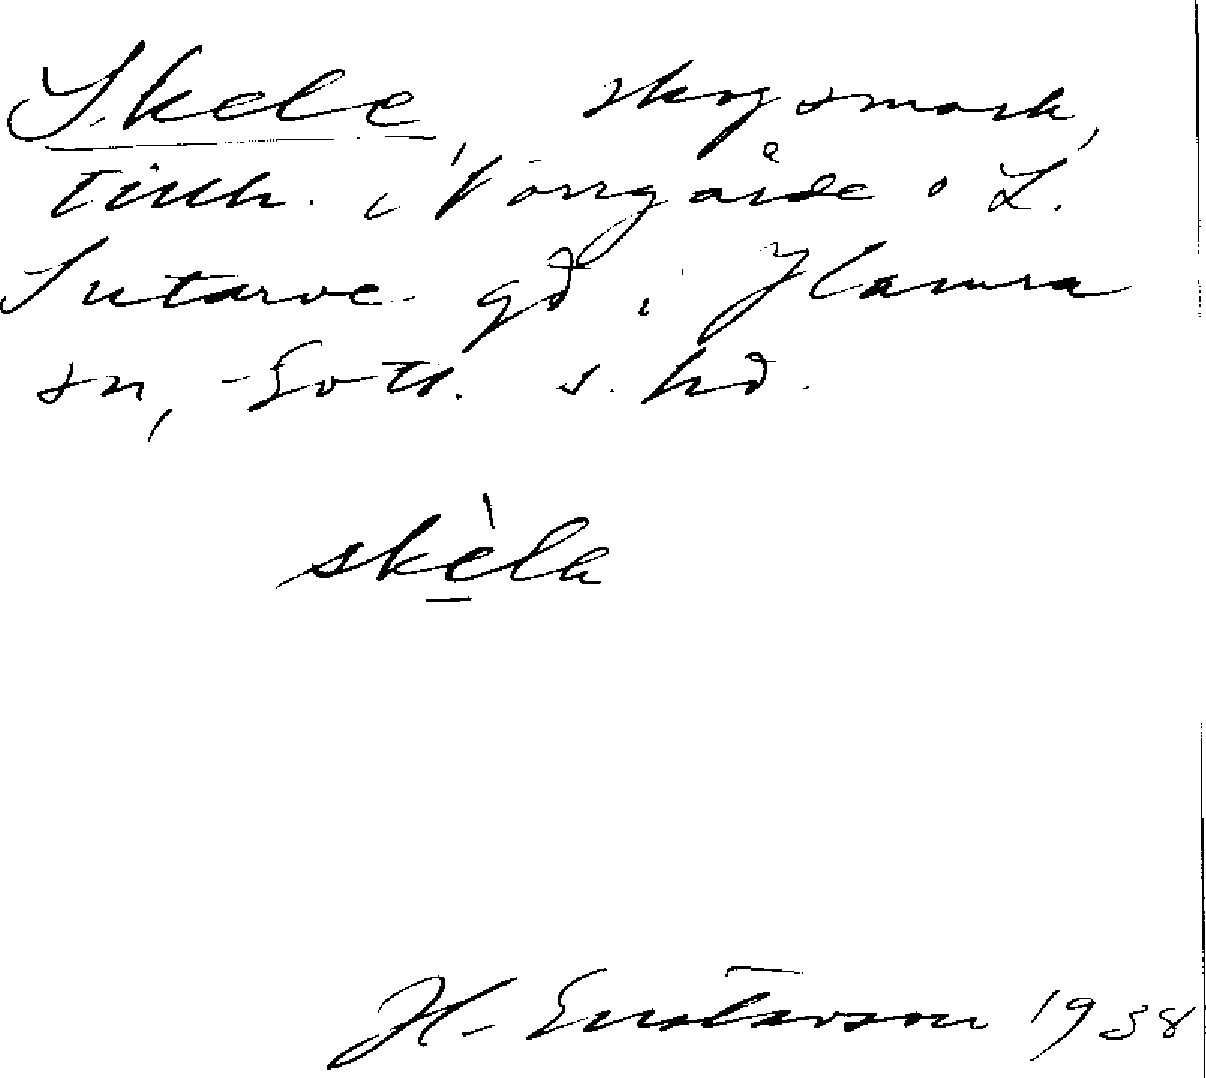 Skele, skogsmark,
tillh. i Norrgårde o L.
Sutarve gd i Hamra
sn, Gotl. s. hd.
skèla
H. Gustavson 1938